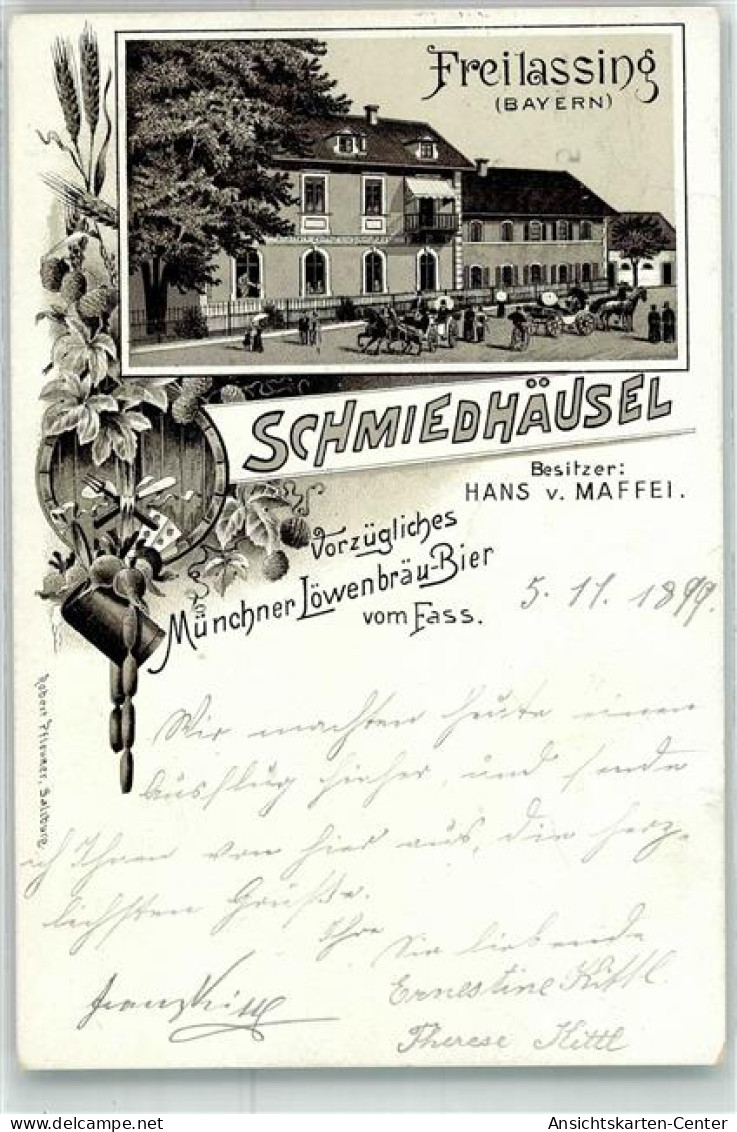 Freilassing
(BAYERN)
SCHMIEDHÄUSEL
Besitzer:
HANS v. MAFFEI.
Vorzügliches
Münchner Löwenbräu-Bier
vom Fass.
5. 11. 1899.
Wir machten heute einen
Ausflug hieher, und sende
ich Ihnen von hier aus, die herz-
lichsten Grüße.
Ihre Sie liebende
Ernestine Kittl.
Franz Kittl
Therese Kittl
Salzburg.
delcampe.net
Ansichtskarten-Center